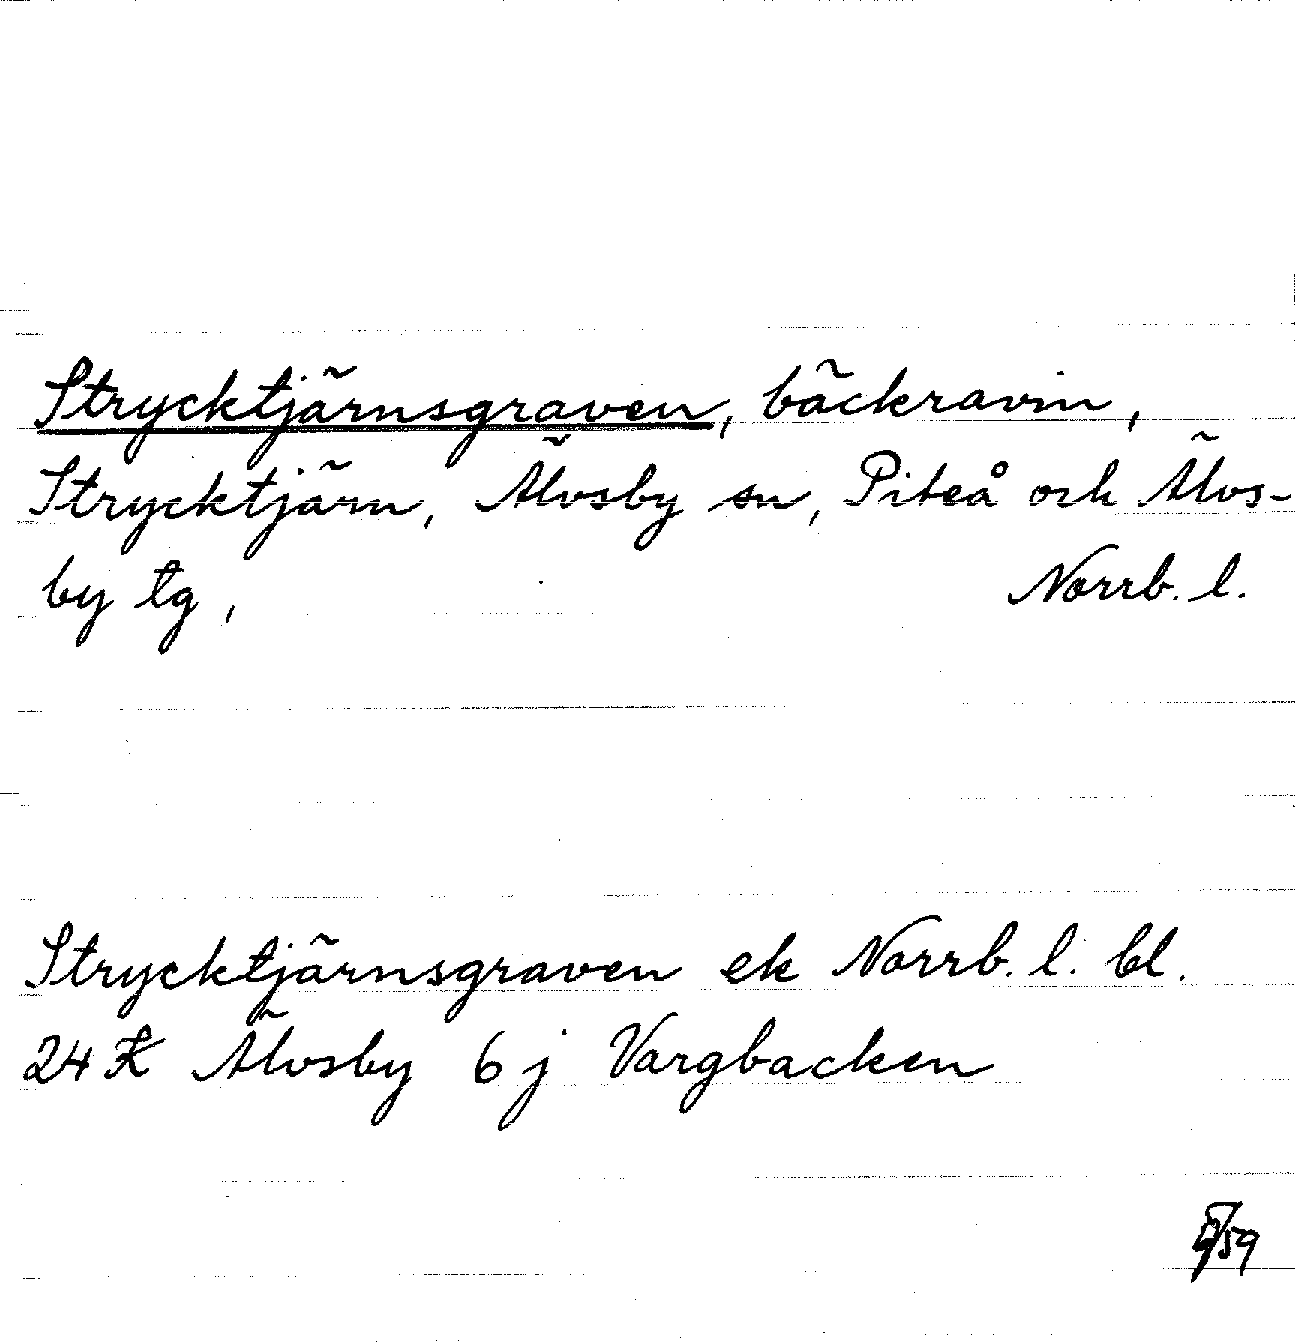 Strycktjärnsgraven, bäckravin,
Strycktjärn, Älvsby sn, Piteå och Älvs-
by tg, Norrb. l.
Strycktjärnsgraven ek Norrb. l. bl.
24 K Älvsby 6 j Vargbacken